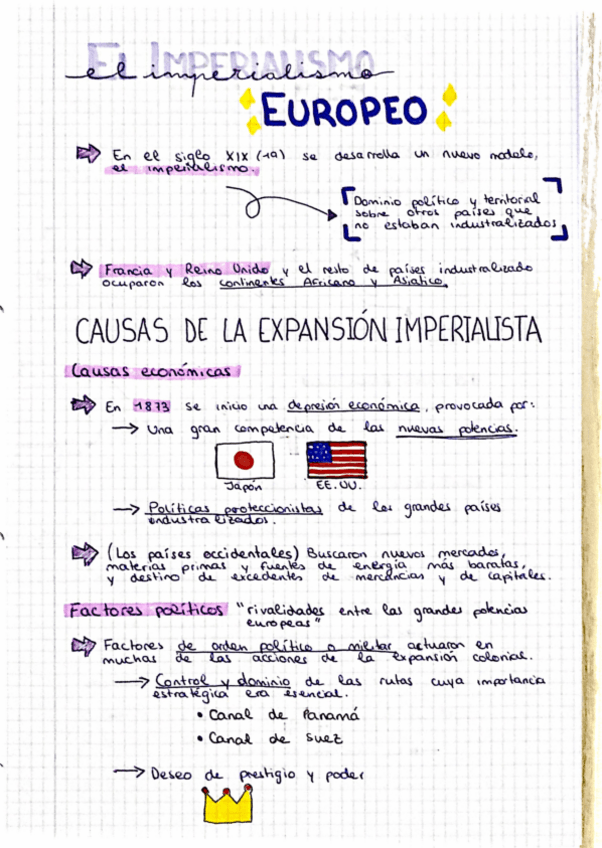 El Imperialismo
el imperialismo
EUROPEO
En el siglo XIX (19) se desarrolla un nuevo modelo,
el imperialismo.
Dominio político y territorial
sobre otros países que
no estaban industralizados
Francia y Reino Unido y el resto de países industralizado
ocuparon los continentes Africano y Asiatico.
CAUSAS DE LA EXPANSIÓN IMPERIALISTA
Causas económicas
En 1873 se inicio una depresión económica, provocada por:
Una gran competencia de las nuevas potencias.
Japón
EE.UU.
Políticas proteccionistas de los grandes países
industralizados.
(Los países occidentales) Buscaron nuevos mercados,
materias primas y fuentes de energía más baratas,
y destino de excedentes de mercancias y de capitales.
Factores políticos "rivalidades entre las grandes potencias
europeas"
Factores de orden político o militar actuaron en
muchas de las acciones de la expansión colonial.
Control y dominio de las rutas cuya importancia
estratégica era esencial.
• Canal de Panamá
• Canal de Suez
Deseo de prestigio y poder